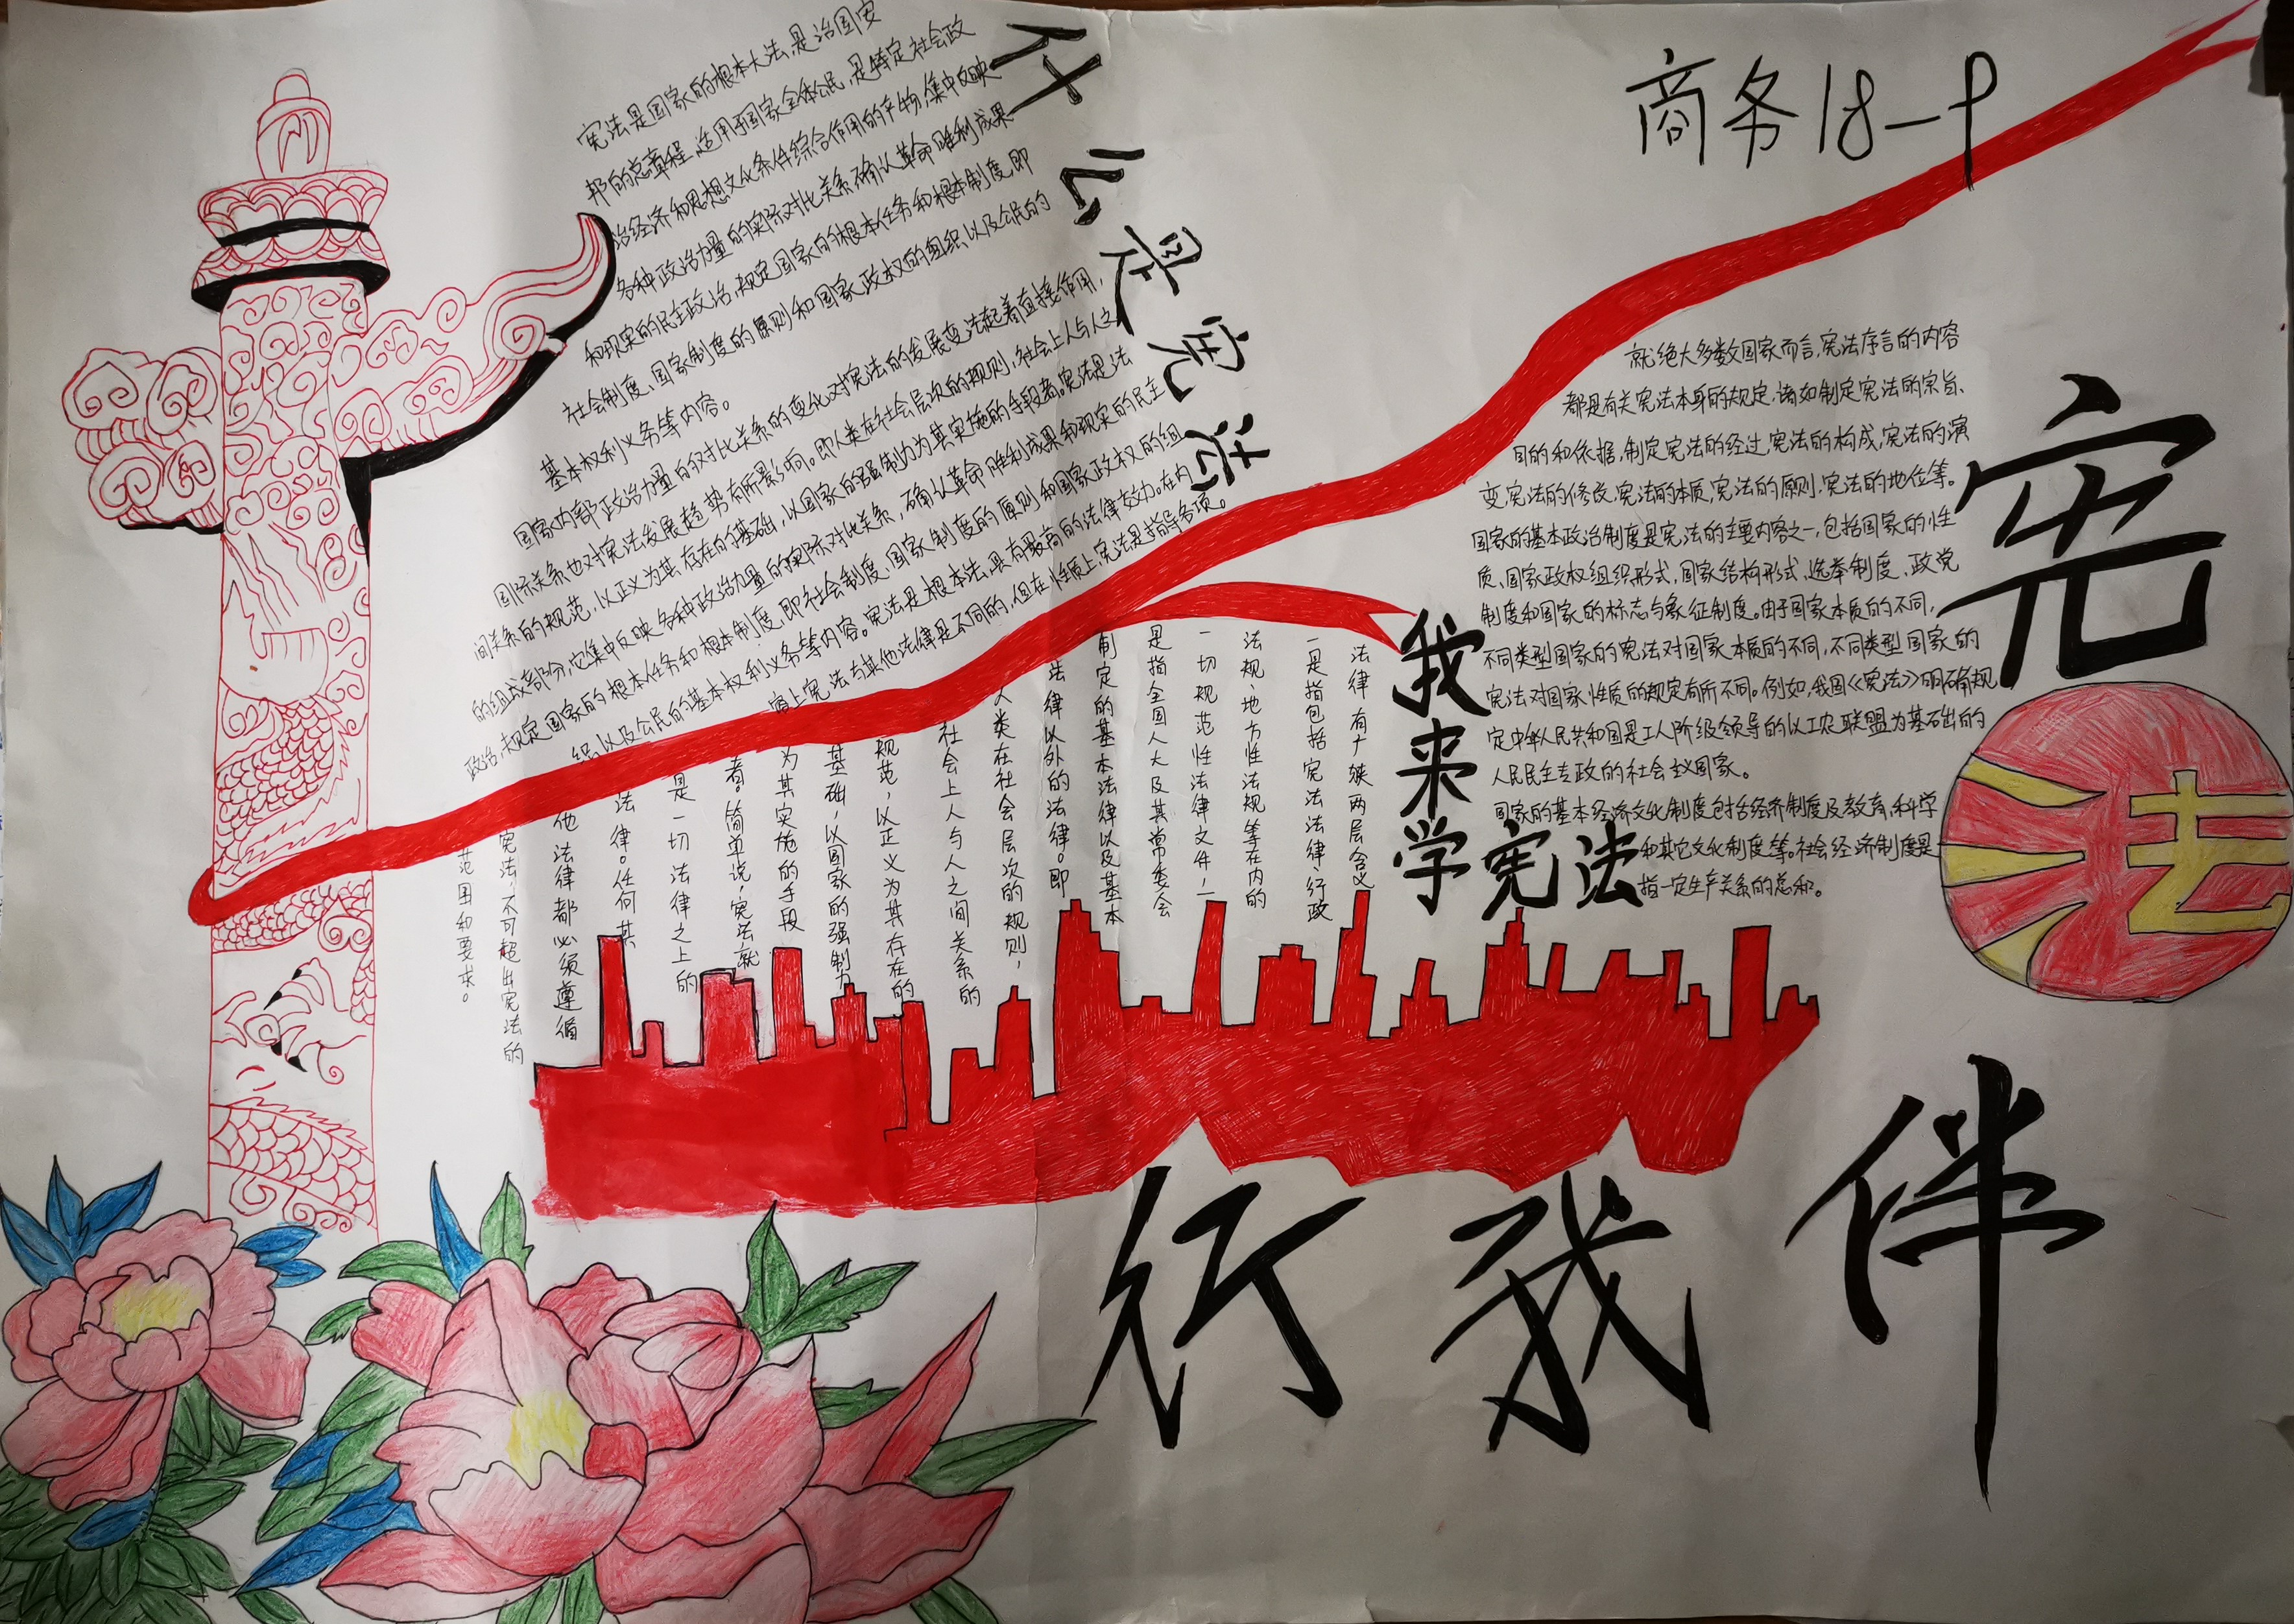 商务18-9
什么是宪法
宪法是国家的根本大法,是治国安
邦的总章程,适用于国家全体公民,是特定社会政
治经济和思想文化条件综合作用的产物,集中反映
各种政治力量的实际对比关系,确认革命胜利成果
和现实的民主政治,规定国家的根本任务和根本制度,即
社会制度、国家制度的原则和国家政权的组织以及公民的
基本权利义务等内容。
国家内部政治力量的对比关系的变化对宪法的发展变法起着直接作用,
国际关系也对宪法发展趋势有所影响。即人类在社会层次的规则,社会上人与人之
间关系的规范,以正义为其存在的基础,以国家的强制力为其实施的手段者。宪法是法
的组成部分,它集中反映各种政治力量的实际对比关系,确认革命胜利成果和现实的民主
政治,规定国家的根本任务和根本制度,即社会制度、国家制度的原则和国家政权的组
织以及公民的基本权利义务等内容。宪法是根本法,具有最高的法律效力。在内
容上宪法与其他法律是不同的,但在性质上,宪法是指导各项。
法律有广狭两层含义
一是指包括宪法法律、行政
法规、地方性法规等在内的
一切规范性法律文件,二
是指全国人大及其常委会
制定的基本法律以及基本
法律以外的法律。即
人类在社会层次的规则,
社会上人与人之间关系的
规范,以正义为其存在的
基础,以国家的强制力
为其实施的手段
者。简单说,宪法就
是一切法律之上的
法律。任何其
他法律都必须遵循
宪法,不可超出宪法的
范围和要求。
我来学宪法
就绝大多数国家而言,宪法序言的内容
都是有关宪法本身的规定,诸如制定宪法的宗旨、
目的和依据,制定宪法的经过,宪法的构成,宪法的演
变,宪法的修改,宪法的本质,宪法的原则,宪法的地位等。
国家的基本政治制度是宪法的主要内容之一,包括国家的性
质,国家政权组织形式,国家结构形式,选举制度、政党
制度和国家的标志与象征制度。由于国家本质的不同,
不同类型国家的宪法对国家本质的不同,不同类型国家的
宪法对国家性质的规定有所不同。例如,我国《宪法》明确规
定中华人民共和国是工人阶级领导的以工农联盟为基础的
人民民主专政的社会主义国家。
国家的基本经济文化制度包括经济制度及教育、科学
和其它文化制度等。社会经济制度是
指一定生产关系的总和。
宪
法
伴
我
行